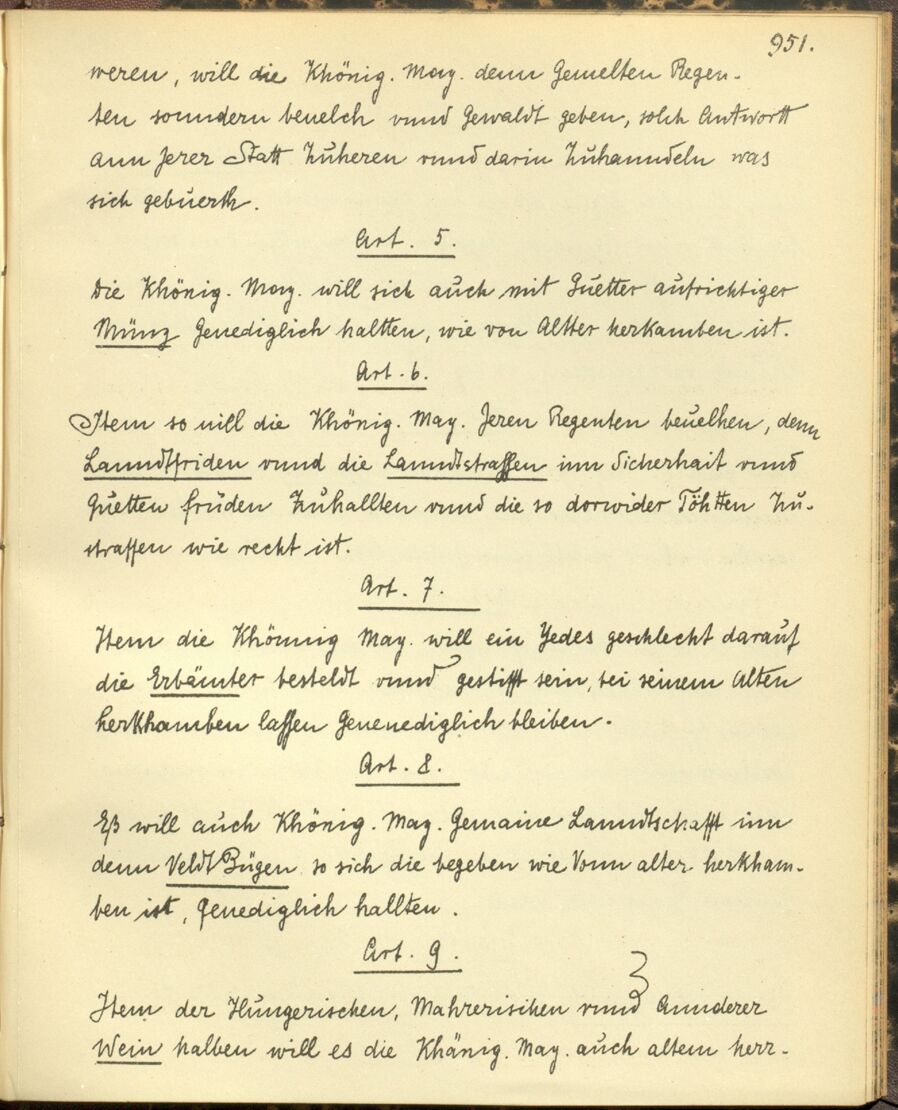 951.
weren, will die Khönig. May. denn Gemelten Regen-
ten sonndern beuelch vnnd Gewaldt geben, solch Antwortt
ann Jerer Statt Zuheren vnnd darin Zuhanndeln was
sich gebuerth.
Art. 5.
Die Khönig. May. will sich auch mit Guetter aufrichtiger
Münz Genediglich haltten, wie von Altter herkamben ist.
Art. 6.
Item so will die Khönig. May. Jeren Regenten beuelhen, denn
Lanndtfriden vnnd die Lanndtstrassen inn Sicherhait vnnd
Guetten früden Zuhallten vnnd die so dorwider Töhtten Zu-
straffen wie recht ist.
Art. 7.
Item die Khönnig May. will ein Yedes geschlecht darauf
die Erbämter besteldt vnnd gestifft sein, bei seinem Alten
herkhamben lassen Genenediglich bleiben.
Art. 8.
Eß will auch Khönig. May. Gemaine Lanndtschafft inn
denn Veldt Zügen so sich die begeben wie Vonn alter herkham-
ben ist, Genediglich hallten.
Art. 9.
Item der Hungerischen, Mahrerischen vnnd Annderer
Wein halben will es die Khänig. May. auch altem herr-